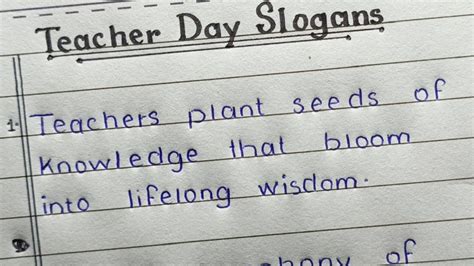 Teacher Day Slogans
1- Teachers plant seeds of
knowledge that bloom
into lifelong wisdom.
of